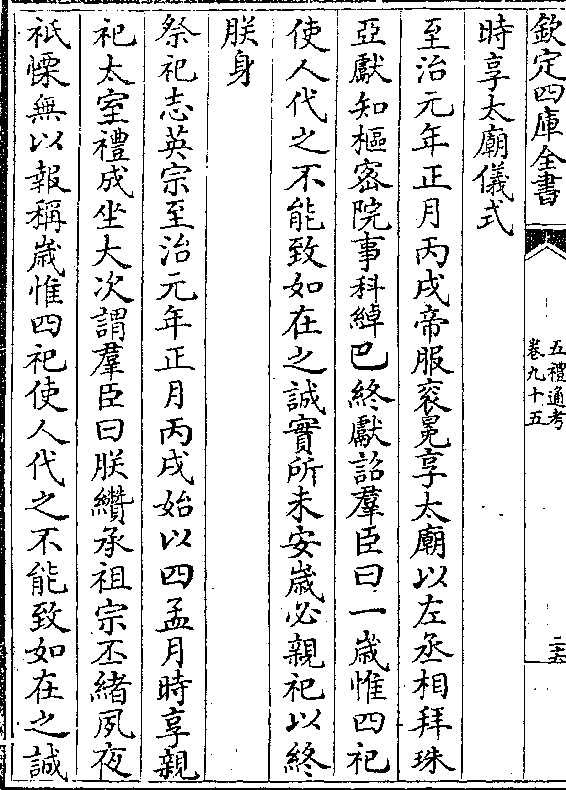 欽定四庫全書
五禮通考
卷九十五
二六
時享太廟儀式
至治元年正月丙戌帝服衮冕享太廟以左丞相拜珠
亞獻知樞密院事科綽巴終獻詔羣臣曰一歲惟四祀
使人代之不能致如在之誠實所未安歲必親祀以終
朕身
祭祀志英宗至治元年正月丙戌始以四孟月時享親
祀太室禮成坐大次謂羣臣曰朕纘承祖宗丕緒夙夜
祗慄無以報稱歲惟四祀使人代之不能致如在之誠